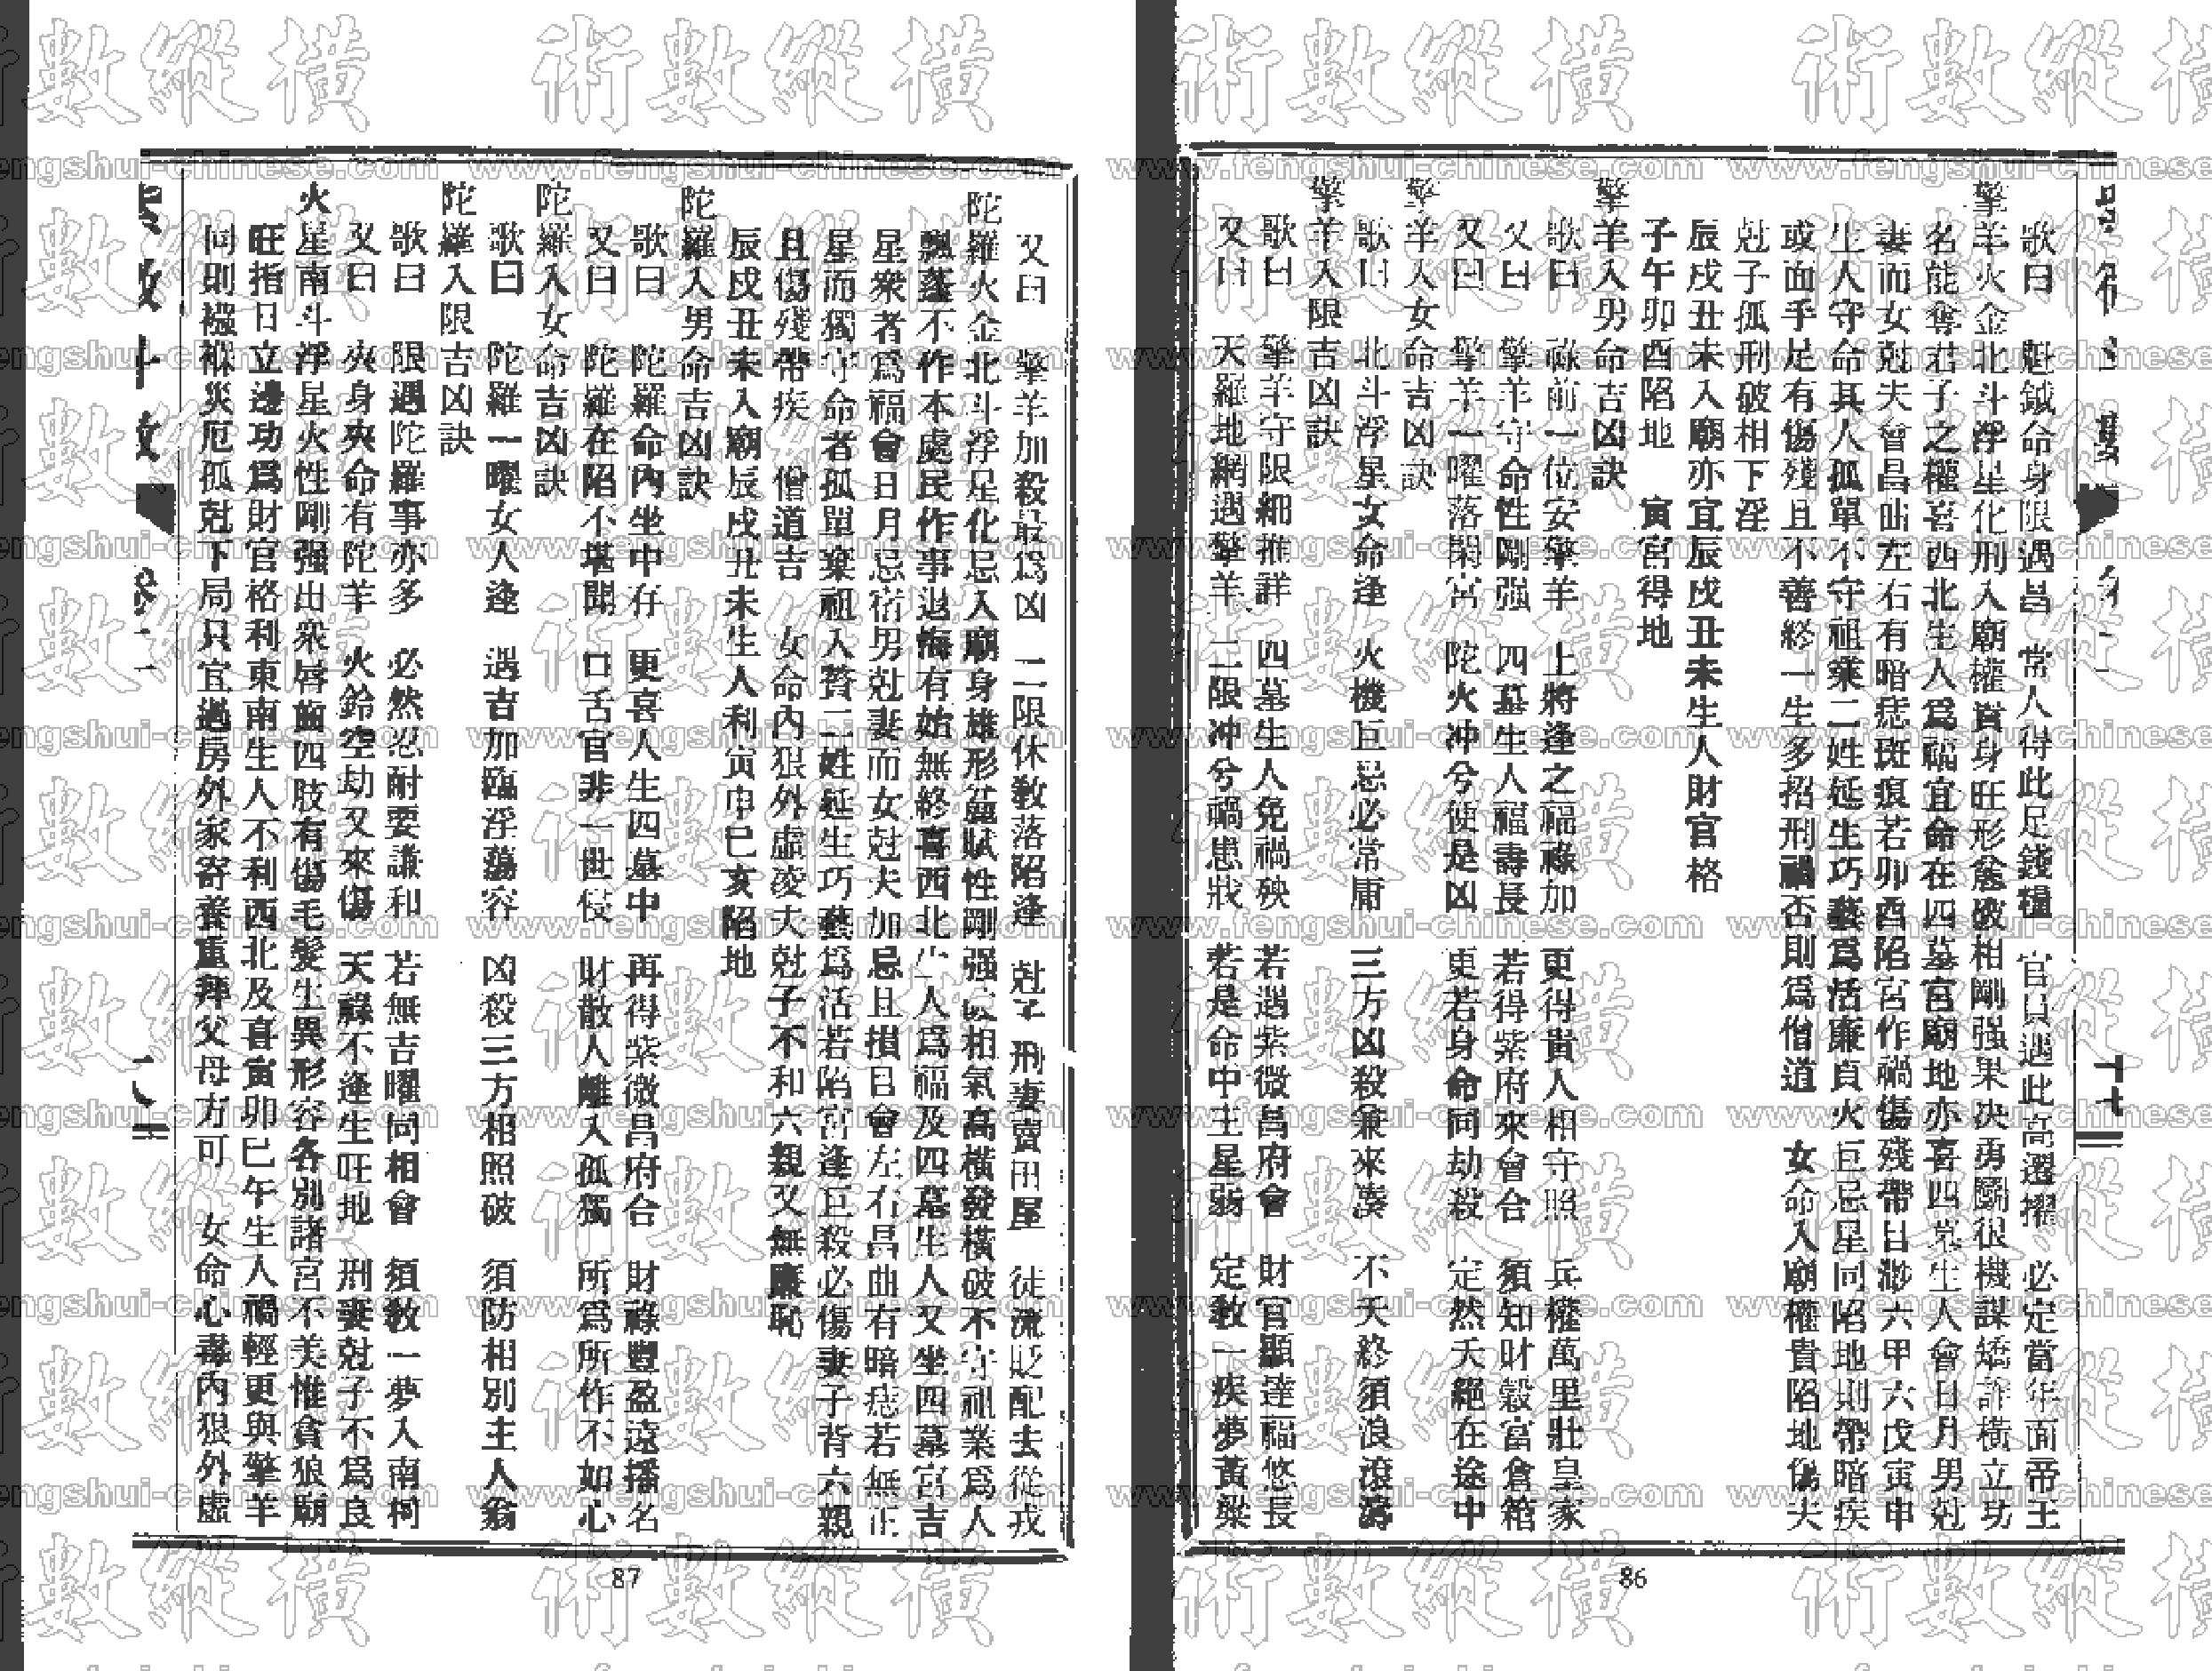 歌曰　魁鉞命身限遇昌　常人得此足錢糧　官員遇此高遷擢　必定當年面帝王
擎羊火金北斗浮星化刑入廟權貴身旺形麤破相剛强果決勇鬭很機謀矯詐橫立功
名能奪君子之權喜西北生人爲福宜命在四墓宮廟地亦喜四墓生人會日月男尅
妻而女尅夫會昌曲左右有暗痣斑痕若卯酉陷宮作禍傷殘帶目渺六甲六戊寅申
生人守命其人孤單不守祖業二姓延生巧藝爲活廉貞火巨忌星同陷地則帶暗疾
或面手足有傷殘且不善終一生多招刑禍否則爲僧道　女命入廟權貴陷地傷夫
尅子孤刑破相下淫
辰戌丑未入廟亦宜辰戌丑未生人財官格
子午卯酉陷地　寅宮得地
擎羊入男命吉凶訣
歌曰　祿前一位安擎羊　上將逢之福祿加　更得貴人相守照　兵權萬里壯皇家
又曰　擎羊守命性剛强　四墓生人福壽長　若得紫府來會合　須知財穀富倉箱
又曰　擎羊一曜落閑宮　陀火冲兮便是凶　更若身命同劫殺　定然夭絕在途中
擎羊入女命吉凶訣
歌曰　北斗浮星女命逢　火機巨忌必常庸　三方凶殺兼來湊　不夭終須浪滾濤
擎羊入限吉凶訣
歌曰　擎羊守限細推詳　四墓生人免禍殃　若遇紫微昌府會　財官顯達福悠長
又曰　天羅地網遇擎羊　二限冲兮禍患戕　若是命中主星弱　定敎一疾夢黃粱
86
又曰　擎羊加殺最爲凶　二限休敎落陷逢　尅子刑妻賣田屋　徒流貶配去從戎
陀羅火金北斗浮星化忌入廟身雄形麤賦性剛强破相氣高橫發橫破不守祖業爲人
飄蓬不作本處民作事退悔有始無終喜西北生人爲福及四墓生人又坐四墓宮吉
星衆者爲福會日月忌宿男尅妻而女尅夫加忌且損目會左右昌曲有暗痣若無正
星而獨守命者孤單棄祖入贅二姓延生巧藝爲活若陷宮逢巨殺必傷妻子背六親
且傷殘帶疾　僧道吉　女命內狠外虛凌夫尅子不和六親又無廉恥
辰戌丑未入廟辰戌丑未生人利寅申巳亥陷地
陀羅入男命吉凶訣
歌曰　陀羅命內坐中存　更喜人生四墓中　再得紫微昌府合　財祿豐盈遠播名
又曰　陀羅在陷不堪聞　口舌官非一世侵　財散人離入孤獨　所爲所作不如心
陀羅入女命吉凶訣
歌曰　陀羅一曜女人逢　遇吉加臨淫蕩容　凶殺三方相照破　須防相別主人翁
陀羅入限吉凶訣
歌曰　限遇陀羅事亦多　必然忍耐要謙和　若無吉曜同相會　須敎一夢入南柯
又曰　夾身夾命有陀羊　火鈴空劫又來傷　天祿不逢生旺地　刑妻尅子不爲良
火星南斗浮星火性剛强出衆唇齒四肢有傷毛髮生異形容各別諸宮不美惟貪狼廟
旺指日立邊功爲財官格利東南生人不利西北及喜寅卯巳午生人禍輕更與擎羊
同則襁褓災厄孤尅下局只宜過房外家寄養重拜父母方可　女命心毒內狠外虛
87
術數縱橫
www.fengshui-chinese.com